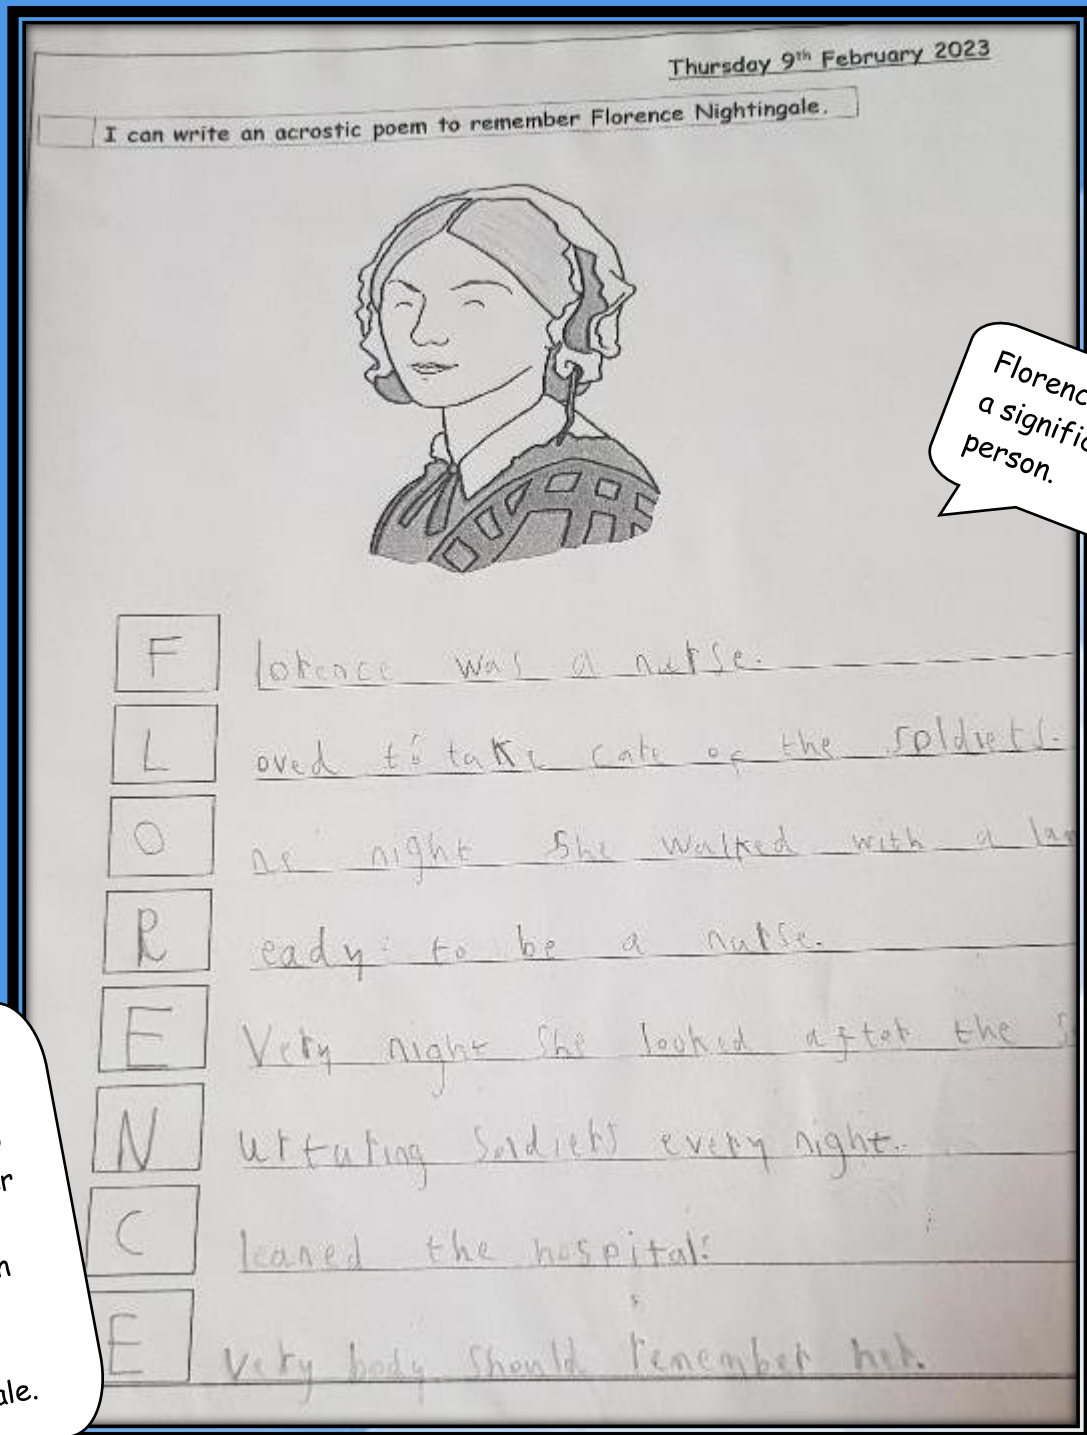 Thursday 9th February 2023
I can write an acrostic poem to remember Florence Nightingale.
Florenc
a signific
person.
F lorence was a nurse.
L oved to take care of the soldiers.
O ne night she walked with a lam
R eady to be a nurse.
E very night she looked after the s
N urturing soldiers every night.
C leaned the hospital.
E very body should remember her.
r
n
ale.